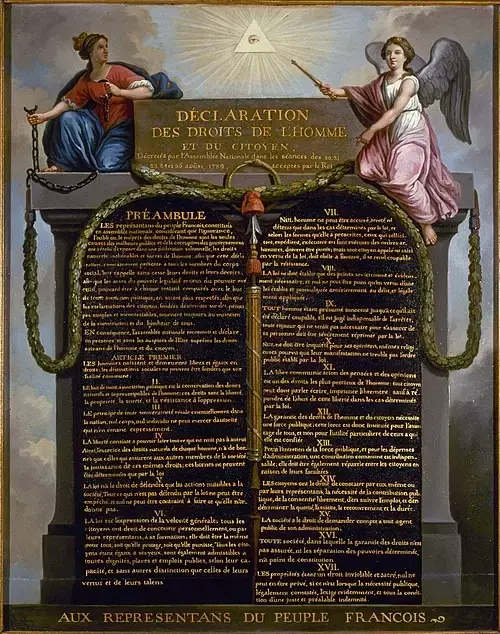 DÉCLARATION
DES DROITS DE L'HOMME
ET DU CITOYEN,
Décrétés par l'Assemblée Nationale dans les séances des 20, 21
23, 24 et 26 août 1789, acceptés par le Roi
PRÉAMBULE
LES représentans du peuple Francois, constitués
en assemblée nationale, considérant que l'ignorance,
l'oubli ou le mépris des droits de l'homme sont les seules
causes des malheurs publics et de la corruption des gouvernemens
ont résolu d'exposer dans une déclaration solemnelle, les droits
naturels, inaliénables et sacrés de l'homme; afin que cette décla
ration, constamment présente a tous les membres du corps
social, leur rappelle sans cesse leurs droits et leurs devoirs;
afin que les actes du pouvoir législatif et ceux du pouvoir exé
cutif, pouvant être a chaque instant comparés avec le but
de toute institution politique, en soient plus respectés; afin que
les reclamations des citoyens, fondées désormais sur des princi
pes simples et incontestables, tournent toujours au maintien
de la constitution et du bonheur de tous.
EN conséquence, l'assemblée nationale reconnoit et déclare
en presence et sous les auspices de l'Etre suprême les droits
suivans de l'homme et du citoyen.
ARTICLE PREMIER
LES hommes naissent et demeurent libres et égaux en
droits; les distinctions sociales ne peuvent être fondées que sur
l'utilité commune.
II.
LE but de toute association politique est la conservation des droits
naturels et imprescriptibles de l'homme; ces droits sont la liberté,
la propriété, la sureté, et la résistance à l'oppression.
III.
LE principe de toute souveraineté réside essentiellement dans
la nation, nul corps, nul individu ne peut exercer d'autorité
qui n'en émane expressement.
IV.
LA liberté consiste a pouvoir faire tout ce qui ne nuit pas à autrui
Ainsi, l'exercice des droits naturels de chaque homme, n'a de bor
nes que celles qui assurent aux autres membres de la société
la jouissance de ces mêmes droits; ces bornes ne peuvent
être déterminées que par la loi
V.
LA loi n'a le droit de défendre que les actions nuisibles à la
société. Tout ce qui n'est pas défendu par la loi ne peut être
empêché, et nul ne peut être contraint à faire ce qu'elle n'or-
donne pas.
VI.
LA loi est l'expression de la volonté générale; tous les
citoyens ont droit de concourir personnellement, ou par
leurs représentans, à sa formation; elle doit être la même
pour tous, soit qu'elle protege, soit qu'elle punisse. Tous les cito
yens étant égaux à ses yeux, sont également admissibles à
toutes dignités, places et emplois publics, selon leur ca-
pacité, et sans autres distinction que celles de leurs
vertus et de leurs talens
VII.
NUL homme ne peut être accusé, arreté ni
détenu que dans les cas déterminés par la loi, et
selon les formes qu'elle a prescrites, ceux qui sollici
tent, expédient, exécutent ou font exécuter des ordres ar-
bitraires, doivent être punis; mais tout citoyen appelé ou saisi
en vertu de la loi, doit obéir a l'instant, il se rend coupable
par la résistance.
VIII.
LA loi ne doit établir que des peines strictement et évidem
ment nécessaires, et nul ne peut être puni qu'en vertu d'une
loi établie et promulguée antérieurement au délit, et légale
ment appliquée.
IX.
TOUT homme étant présumé innocent jusqu'à ce qu'il ait
été déclaré coupable, s'il est jugé indispensable de l'arrêter,
toute rigueur qui ne serait pas nécessaire pour s'assurer de
sa personne doit être sévèrement réprimée par la loi.
X.
NUL ne doit être inquiété pour ses opinions, mêmes religi
euses pourvu que leur manifestation ne trouble pas l'ordre
public établi par la loi.
XI.
LA libre communication des pensées et des opinions
est un des droits les plus precieux de l'homme; tout citoyen
peut donc parler écrire, imprimer librement: sauf à ré
pondre de l'abus de cette liberté dans les cas déterminés
par la loi.
XII.
LA garantie des droits de l'homme et du citoyen nécessite
une force publique; cette force est donc instituée pour l'avan
tage de tous, et non pour l'utilité particuliere de ceux a qui
elle est confiée.
XIII.
Pour l'entretien de la force publique, et pour les dépenses
d'administration, une contribution commune est indispen-
sable; elle doit être également répartie entre les citoyens en
raison de leurs facultées
XIV.
LES citoyens ont le droit de constater par eux même ou
par leurs représentans, la nécessité de la contribution pub-
lique, de la consentir librement, d'en suivre l'emploi, et d'en
déterminer la quotité, l'assiette, le recouvrement et la durée.
XV.
LA société a le droit de demander compte a tout agent
public de son administration.
XVI.
TOUTE société, dans laquelle la garantie des droits n'est
pas assurée, ni la séparation des pouvoirs déterminée,
n'a point de constitution
XVII.
LES propriétés étant un droit inviolable et sacré, nul ne
peut en être privé, si ce n'est lorsque la nécessité publique,
légalement constatée, l'exige evidemment, et sous la condition
d'une juste et préalable indemnité.
AUX REPRESENTANS DU PEUPLE FRANCOIS